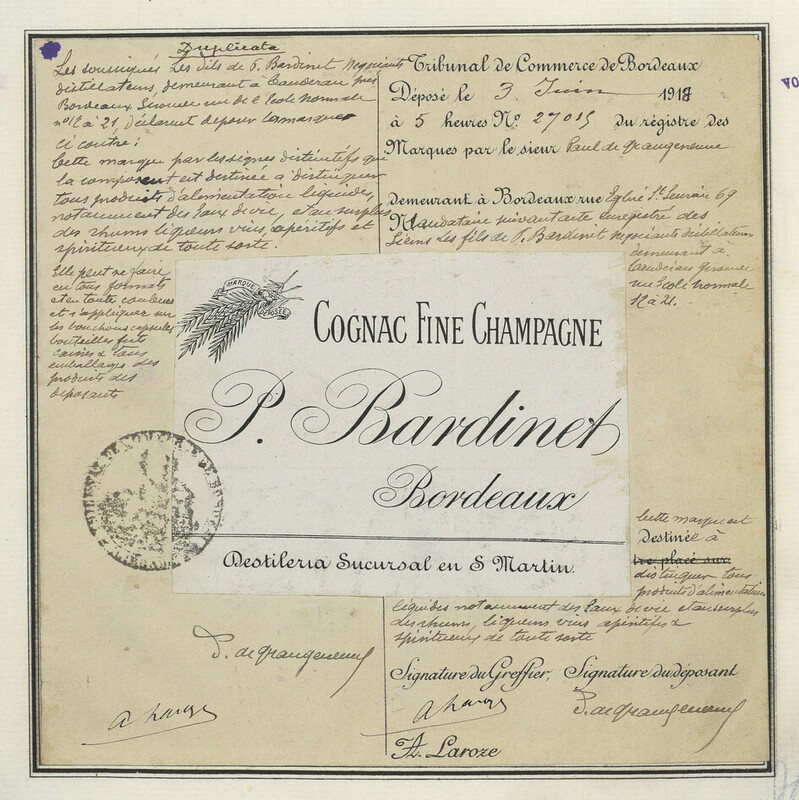 Duplicata
Les soussignés Les fils de P. Bardinet Negociants
distillateurs, demeurant à Cauderan près
Bordeaux Gironde rue de l'Ecole normale
n° 12 à 21, déclarent deposer la marque
ci contre:
Cette marque par les signes distinctifs qui
la composent est destinée à distinguer
tous produits d'alimentation liquides,
notamment des Eaux de vie, et au surplus
des rhums liqueurs vins, apéritifs et
spiritueux de toute sorte.
Elle peut se faire
en tous formats
et en toute couleurs
et s'appliquer sur
les bouchons capsules
bouteilles futs
caisses & tous
emballages des
produits des
déposants
Tribunal de Commerce de Bordeaux
Déposé le 3 Juin 1918
à 5 heures N° 27015 du régistre des
Marques par le sieur Paul de Grangeneuve
demeurant à Bordeaux rue Eglise St Seurin 69
Mandataire suivant acte enregistré des
Siens Les fils de P. Bardinet negociants distillateurs
demeurant à
Cauderan Gironde
rue Ecole normale
12 à 21.
MARQUE
DÉPOSÉE
COGNAC FINE CHAMPAGNE
P. Bardinet
Bordeaux
Destileria Sucursal en S Martin.
Cette marque est
Destinée à
être placé sur
distinguer tous
produits d'alimentation
liquides notamment des Eaux de vie et au surplus
des rhums, liqueurs vins apéritifs &
spiritueux de toute sorte
P. de Grangeneuve
Signature du Greffier, Signature du déposant
P. de Grangeneuve
A. Laroze
VO